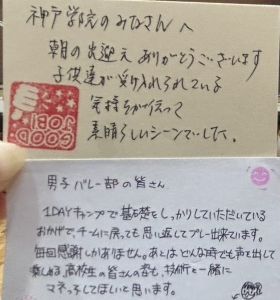 神戸学院のみなさんへ
朝の出迎えありがとうございます
子供達が受け入れられている
気持ちが伝って
素晴らしいシーンでした。
GOOD JOB!
男子バレー部の皆さん
1DAYキャンプで基礎をしっかりしていただいている
おかげでチームに戻っても思い返してプレー出来ています。
毎回感謝しかありません。あとはどんな時でも声を出して
楽しめる、高校生の皆さんの姿も、技術と一緒に
マネっ子してほしいと思います。